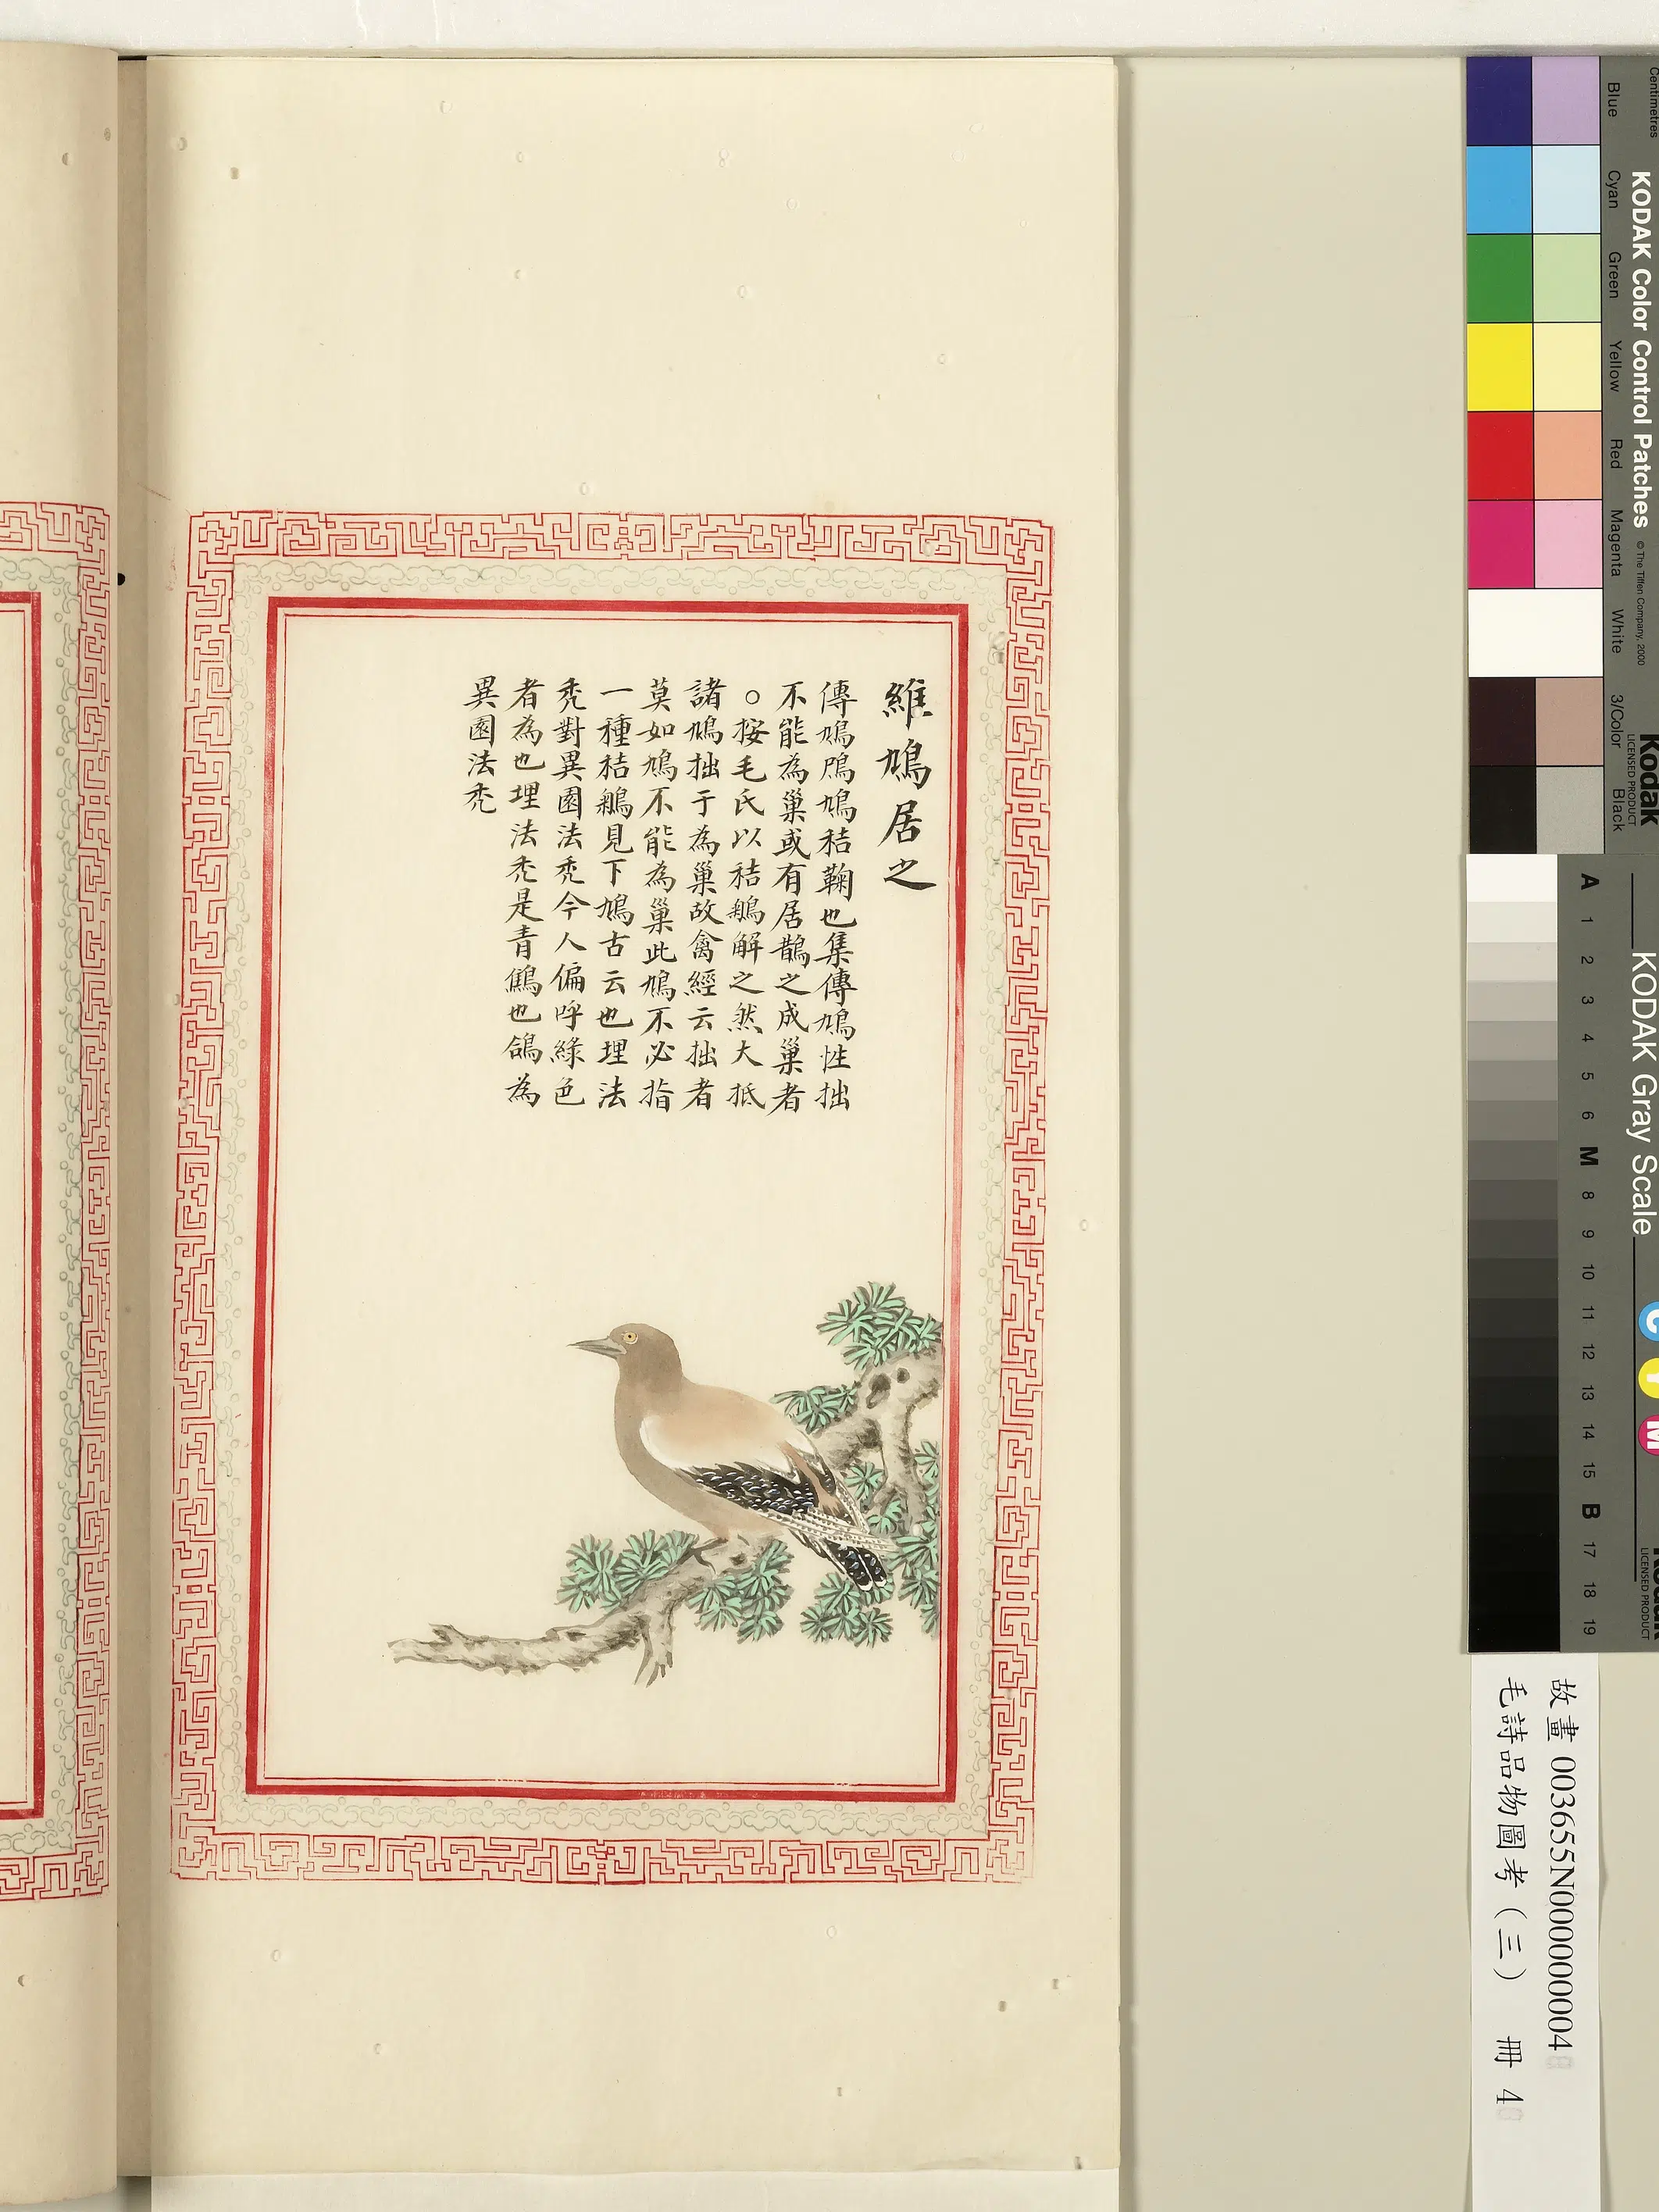 維鳩居之
傳鳩鳲鳩秸鞠也集傳鳩性拙
不能為巢或有居鵲之成巢者
○按毛氏以秸鵴解之然大抵
諸鳩拙于為巢故禽經云拙者
莫如鳩不能為巢此鳩不必指
一種秸鵴見下鳩古云也埋法
禿對異國法禿今人偏呼綠色
者為也埋法禿是青鷦也鴿為
異國法禿
Centimetres
Blue
Cyan
Green
Yellow
Red
Magenta
White
3/Color
Black
KODAK Color Control Patches
© The Tiffen Company, 2000
Kodak
LICENSED PRODUCT
KODAK Gray Scale
C
Y
M
A 1 2 3 4 5 6 M 8 9 10 11 12 13 14 15 B 17 18 19
Kodak
LICENSED PRODUCT
故畫 003655N000000004
毛詩品物圖考（三） 冊 4